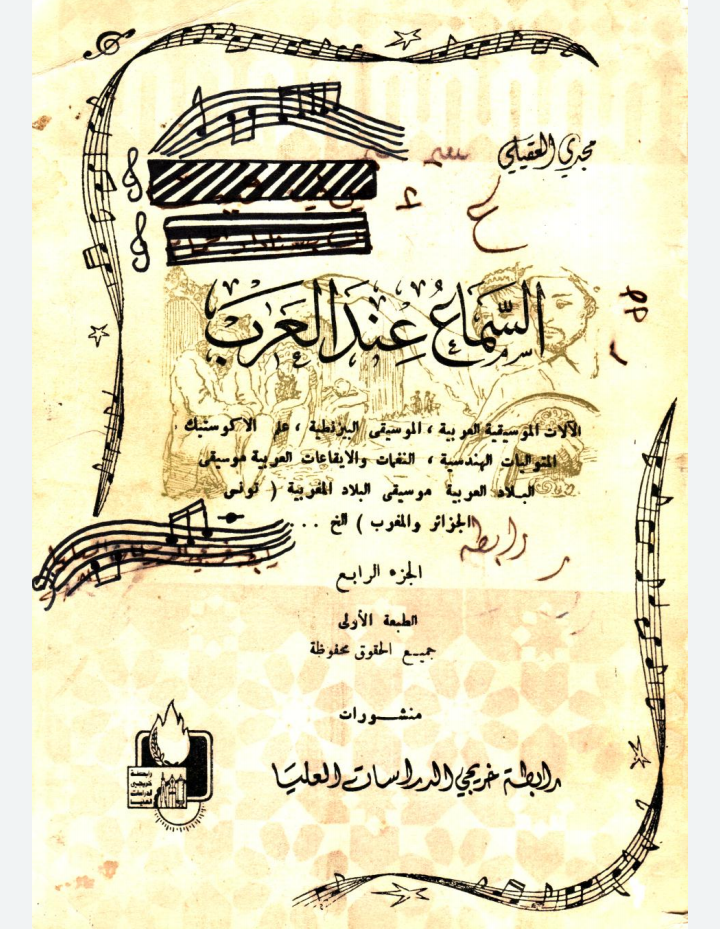 مجدي العقيلي
السَّمَاعُ عِندَ العَرَب
الآلات الموسيقية العربية ، الموسيقى البيزنطية ، علم الاكوستيك ،
المتواليات الهندسية ، النغمات والايقاعات العربية موسيقى
البلاد العربية موسيقى البلاد المغربية ( تونس
الجزائر والمغرب ) الخ . . .
رابطة
الجزء الرابع
الطبعة الأولى
جميع الحقوق محفوظة
منشورات
رابطة خريجي الدراسات العليا
رابطة
خريجي
الدراسات
العليا